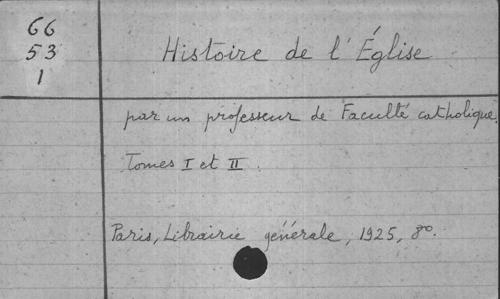 66
53
1
Histoire de l'Église
par un professeur de Faculté catholique.
Tomes I et II.
Paris, Librairie générale, 1925, 8º.